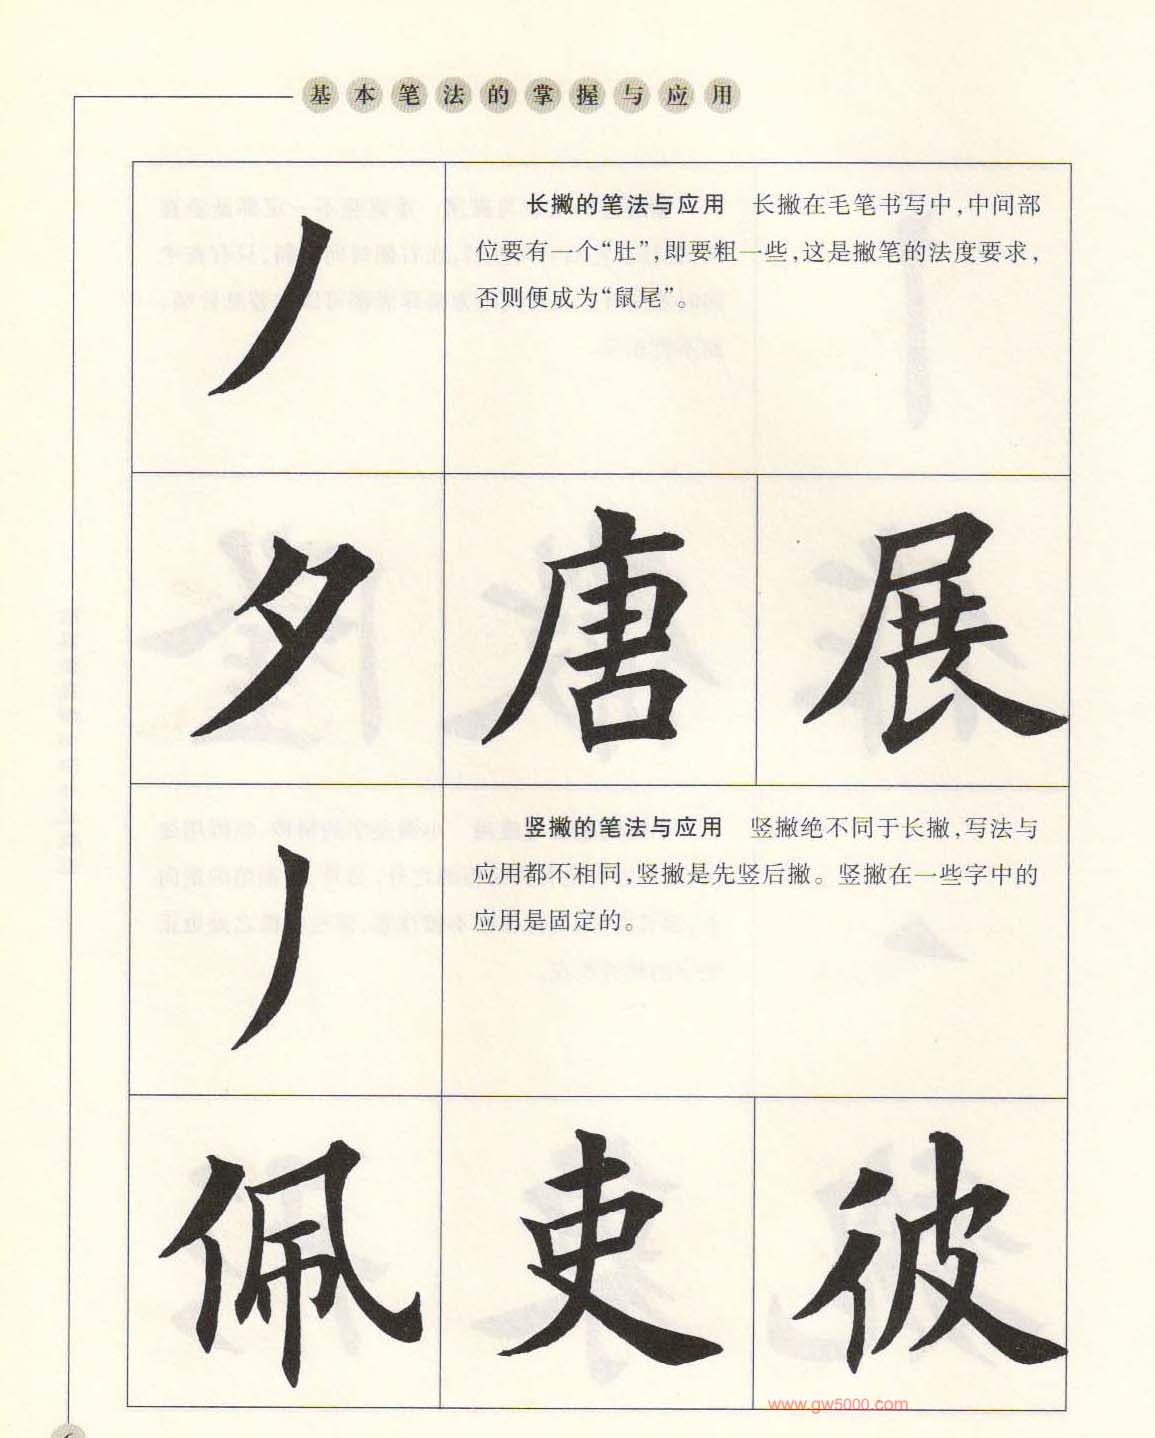 基本笔法的掌握与应用
丿
长撇的笔法与应用　长撇在毛笔书写中，中间部
位要有一个“肚”，即要粗一些，这是撇笔的法度要求，
否则便成为“鼠尾”。
夕 唐 展
丿
竖撇的笔法与应用　竖撇绝不同于长撇，写法与
应用都不相同，竖撇是先竖后撇。竖撇在一些字中的
应用是固定的。
佩 吏 彼
www.gw5000.com